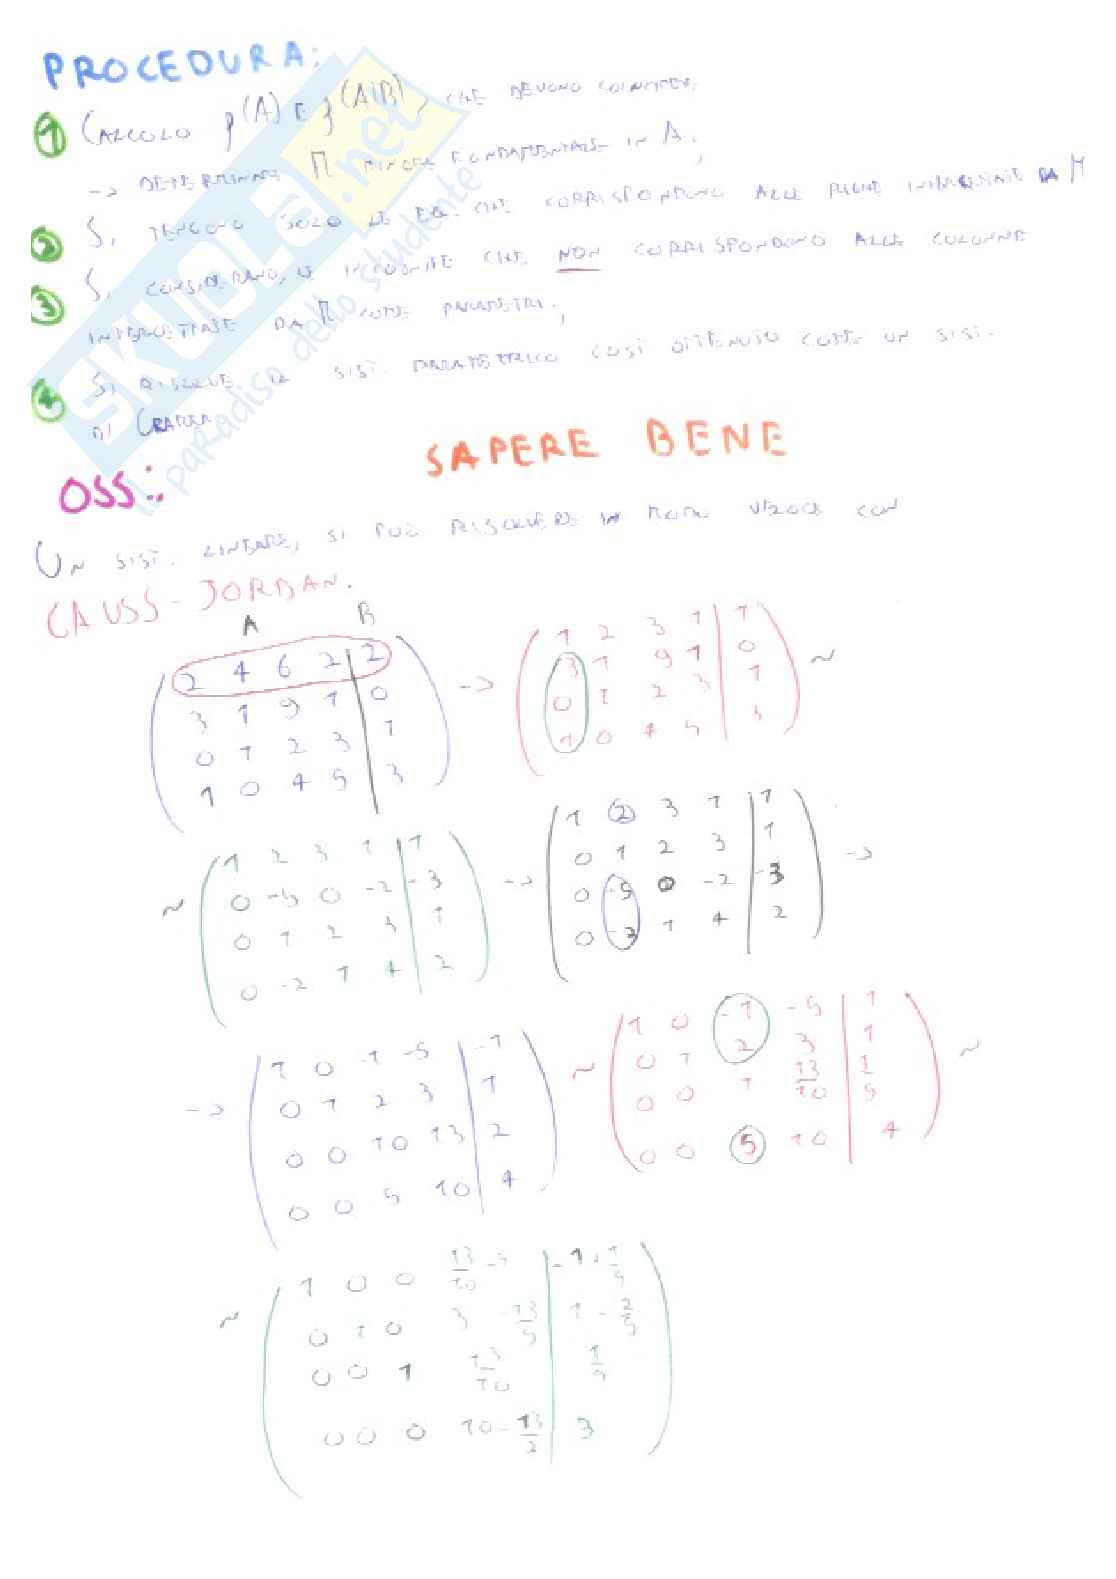 PROCEDURA:
1 CALCOLO ρ(A) E ρ(A|B), CHE DEVONO COINCIDERE.
-> DETERMINARE M MINORE FONDAMENTALE IN A;
2 SI TENGONO SOLO LE EQ. CHE CORRISPONDONO ALLE RIGHE INTERCETTATE DA M
3 SI CONSIDERANO LE INCOGNITE CHE NON CORRISPONDONO ALLE COLONNE
INTERCETTATE DA M COME PARAMETRI;
4 SI RISOLVE IL SIST. PARAMETRICO COSÌ OTTENUTO COME UN SIST.
DI CRAMER
SAPERE BENE
OSS.:
UN SIST. LINEARE, SI PUÒ RISOLVERE IN MODO VELOCE CON
GAUSS-JORDAN.
A B
2 4 6 2 | 2
3 1 9 1 | 0
0 1 2 3 | 1
1 0 4 5 | 3
->
1 2 3 1 | 1
3 1 9 1 | 0
0 1 2 3 | 1
1 0 4 5 | 3
~
~
1 2 3 1 | 1
0 -5 0 -2 | -3
0 1 2 3 | 1
0 -2 1 4 | 2
->
1 2 3 1 | 1
0 1 2 3 | 1
0 -5 0 -2 | -3
0 -2 1 4 | 2
->
->
1 0 -1 -5 | -1
0 1 2 3 | 1
0 0 10 13 | 2
0 0 5 10 | 4
~
1 0 -1 -5 | 1
0 1 2 3 | 1
0 0 1 13/10 | 1/5
0 0 5 10 | 4
~
~
1 0 0 13/10 -5 | -1+1/5
0 1 0 3 -13/5 | 1-2/5
0 0 1 13/10 | 1/5
0 0 0 10-13/2 | 3
SKUOLA.net
il paradiso dello studente